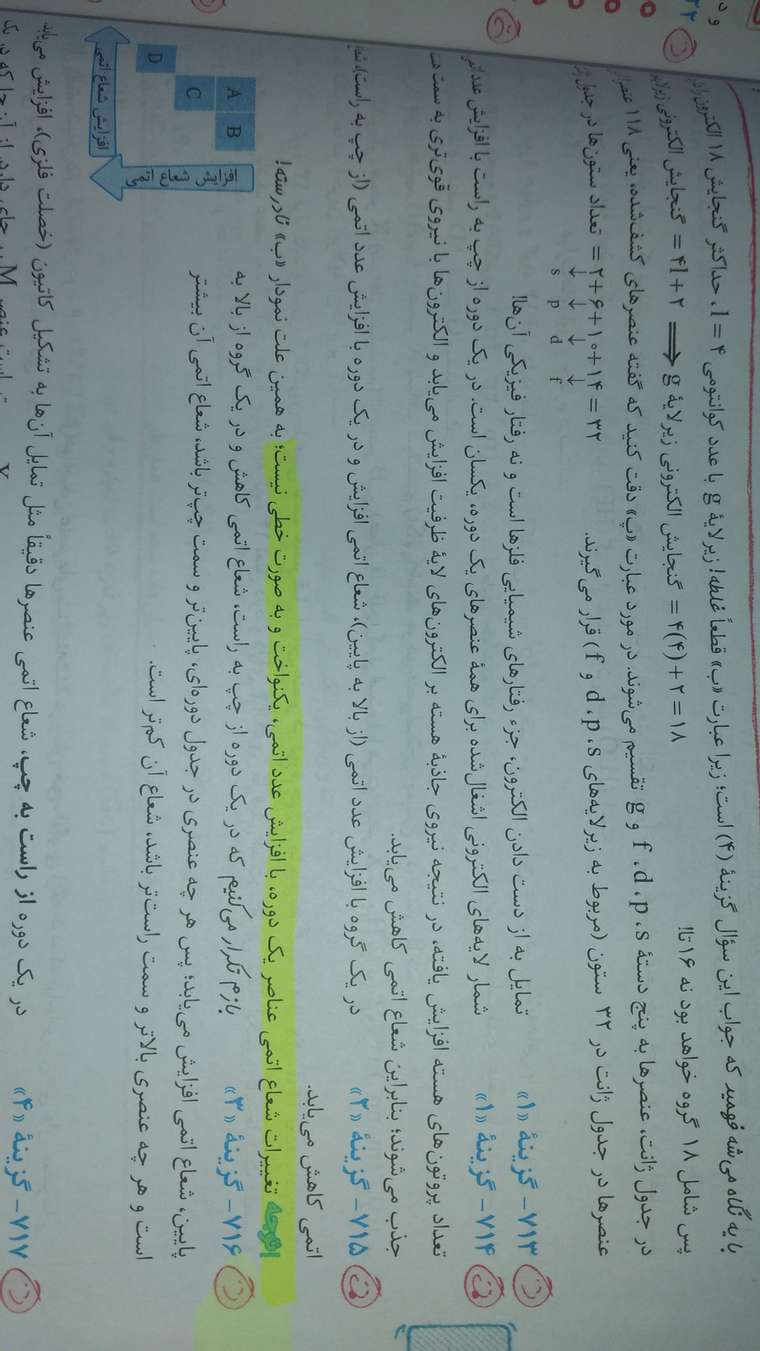 و د
۳۲
با یه نگاه می‌شه فهمید که جواب این سؤال گزینهٔ (۴) است؛ زیرا عبارت «ب» قطعاً غلطه! زیرلایهٔ g با عدد کوانتومی l = ۴، حداکثر گنجایش ۱۸ الکترون را
پس شامل ۱۸ گروه خواهد بود نه ۱۶ تا!
گنجایش الکترونی زیرلایهٔ g = ۴(۴) + ۲ = ۱۸ ⟹ ۴l + ۲ = گنجایش الکترونی
در جدول ژانت، عنصرها به پنج دستهٔ s، p، d، f و g تقسیم می‌شوند. در مورد عبارت «پ» دقت کنید که گفته عنصرهای کشف‌شده، یعنی ۱۱۸
عنصرها در جدول ژانت در ۳۲ ستون (مربوط به زیرلایه‌های s، p، d و f) قرار می‌گیرند.
تعداد ستون‌ها در جدول = ۲+۶+۱۰+۱۴ = ۳۲
↓ ↓ ↓ ↓
s p d f
۷۱۳- گزینهٔ «۱» تمایل به از دست دادن الکترون، جزء رفتارهای شیمیایی فلزها است و نه رفتار فیزیکی آن‌ها!
۷۱۴- گزینهٔ «۱» شمار لایه‌های الکترونی اشغال‌شده برای همهٔ عنصرهای یک دوره، یکسان است. در یک دوره از چپ به راست با افزایش عدد
تعداد پروتون‌های هسته افزایش یافته، در نتیجه نیروی جاذبهٔ هسته بر الکترون‌های لایهٔ ظرفیت افزایش می‌یابد و الکترون‌ها با نیروی قوی‌تری به سمت
جذب می‌شوند؛ بنابراین شعاع اتمی کاهش می‌یابد.
۷۱۵- گزینهٔ «۲» در یک گروه با افزایش عدد اتمی (از بالا به پایین)، شعاع اتمی افزایش و در یک دوره با افزایش عدد اتمی (از چپ به راست)،
اتمی کاهش می‌یابد.
تغییرات شعاع اتمی عناصر یک دوره، با افزایش عدد اتمی، یکنواخت و به صورت خطی نیست؛ به همین علت نمودار «ب» نادرسته!
۷۱۶- گزینهٔ «۳» بازم تکرار می‌کنیم که در یک دوره از چپ به راست، شعاع اتمی کاهش و در یک گروه از بالا به
پایین، شعاع اتمی افزایش می‌یابد؛ پس هر چه عنصری در جدول دوره‌ای، پایین‌تر و سمت چپ‌تر باشد، شعاع اتمی آن بیشتر
است و هر چه عنصری بالاتر و سمت راست‌تر باشد، شعاع آن کم‌تر است.
A B
C
D
افزایش شعاع اتمی
افزایش شعاع اتمی
۷۱۷- گزینهٔ «۴» در یک دوره از راست به چپ، شعاع اتمی عنصرها دقیقاً مثل تمایل آن‌ها به تشکیل کاتیون (خصلت فلزی)، افزایش می‌یابد